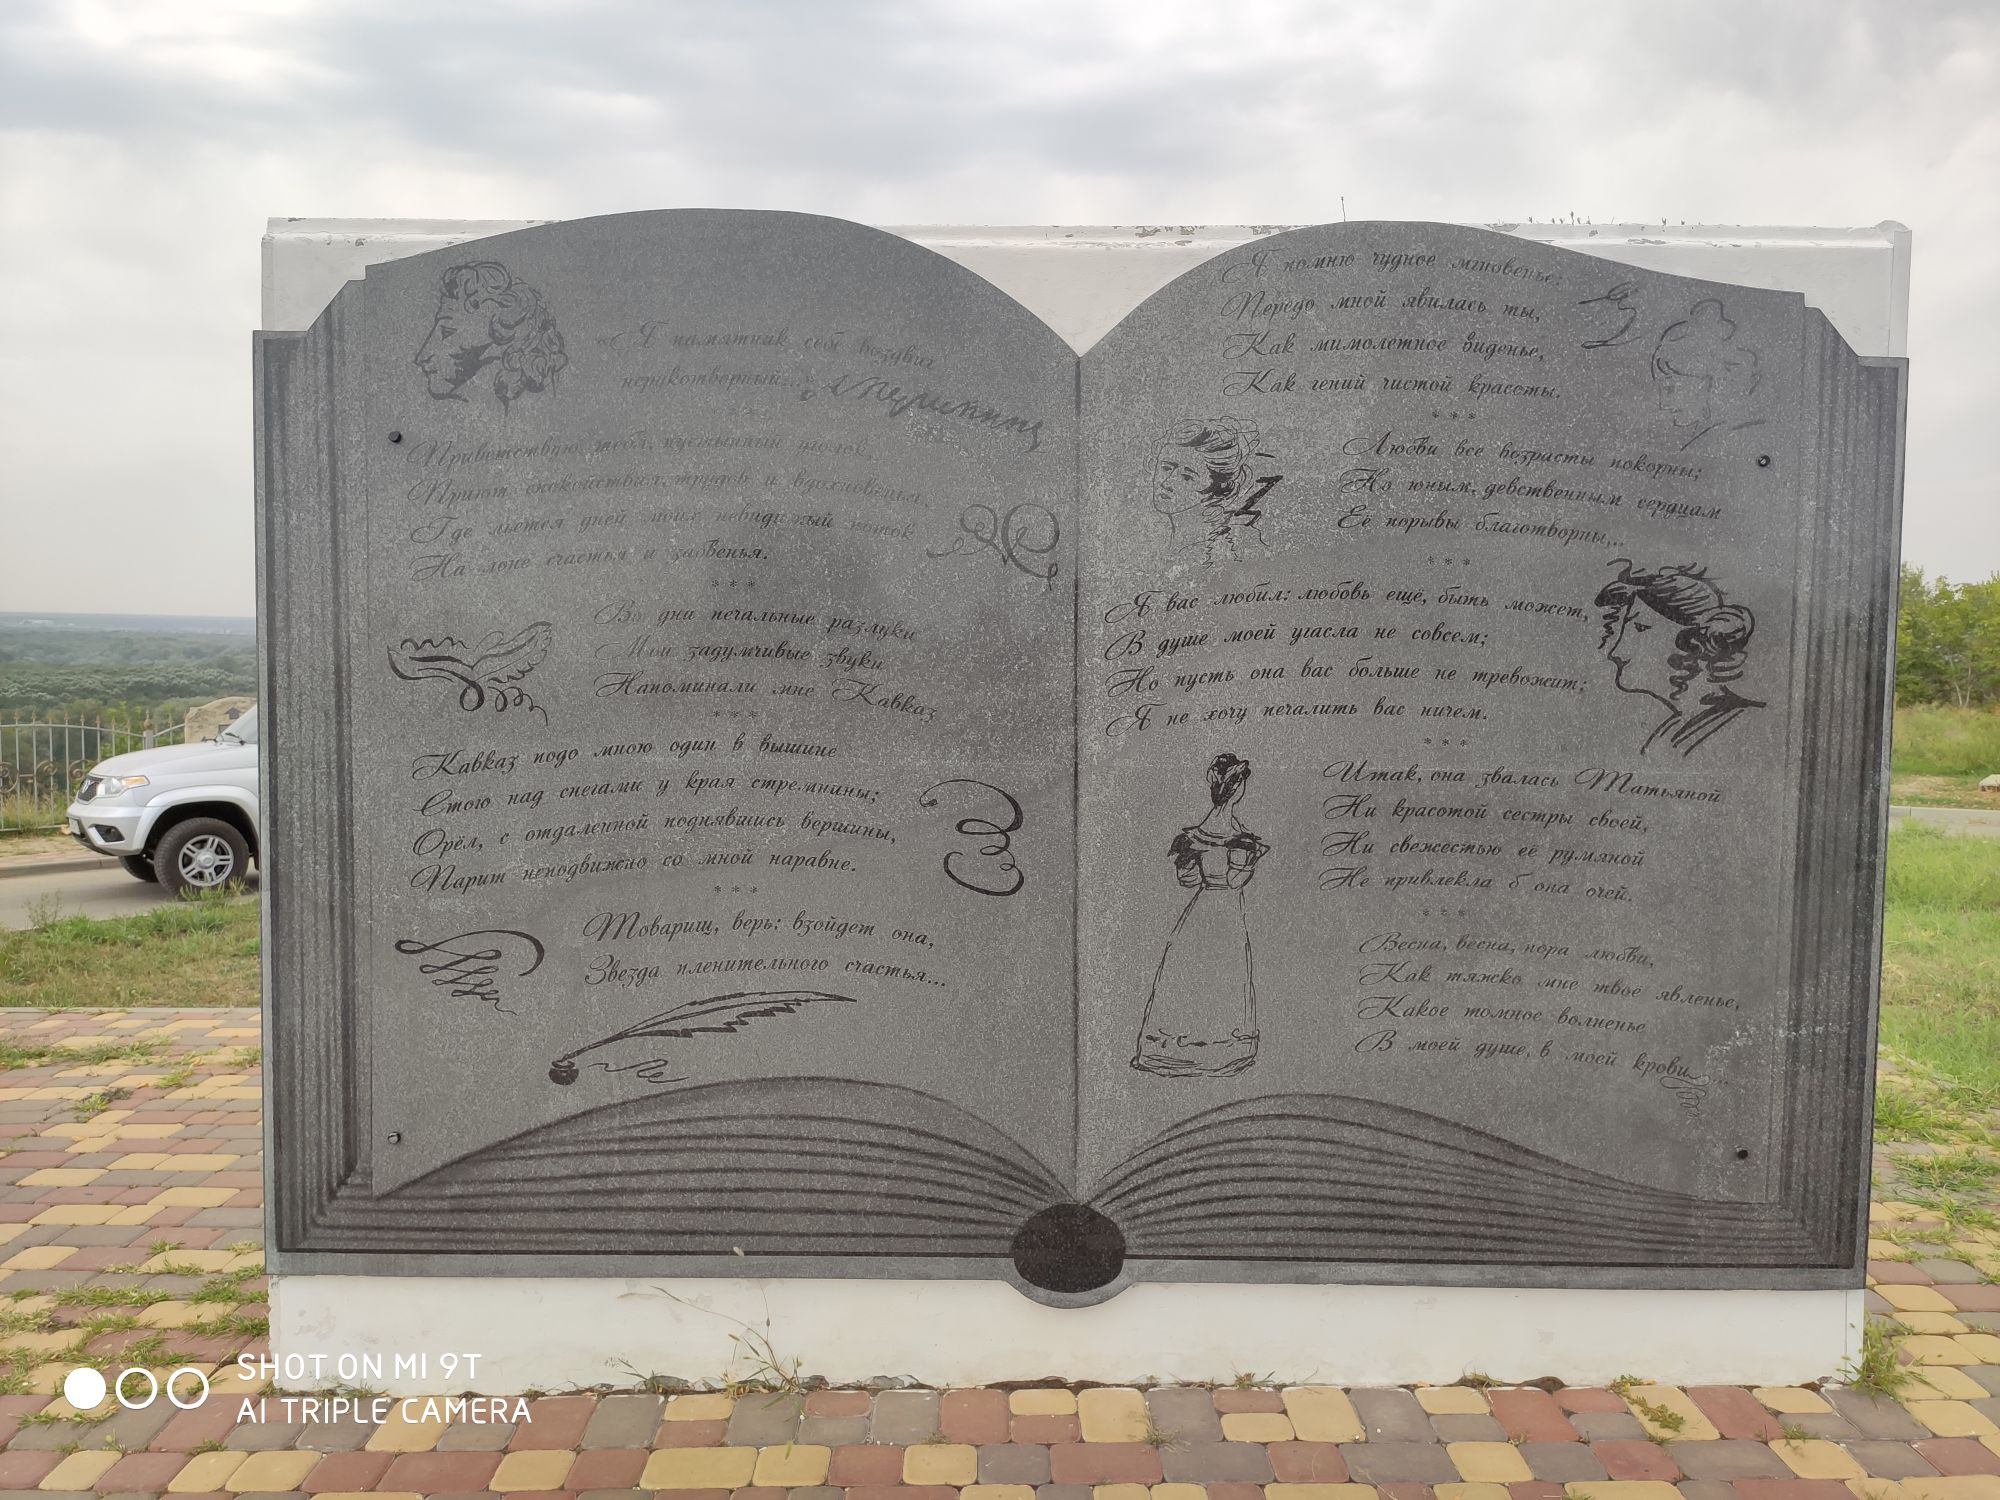 «Я памятник себе воздвиг
нерукотворный...»
А Пушкинъ
Приветствую тебя, пустынный уголок,
Приют спокойствия, трудов и вдохновенья,
Где льется дней моих невидимый поток
На лоне счастья и забвенья.
* * *
Во дни печальные разлуки
Мои задумчивые звуки
Напоминали мне Кавказ
* * *
Кавказ подо мною один в вышине
Стою над снегами у края стремнины;
Орёл, с отдаленной поднявшись вершины,
Парит неподвижно со мной наравне.
* * *
Товарищ, верь: взойдет она,
Звезда пленительного счастья...
Я помню чудное мгновенье:
Передо мной явилась ты,
Как мимолетное виденье,
Как гений чистой красоты.
* * *
Любви все возрасты покорны;
Но юным, девственным сердцам
Её порывы благотворны,...
* * *
Я вас любил: любовь ещё, быть может,
В душе моей угасла не совсем;
Но пусть она вас больше не тревожит;
Я не хочу печалить вас ничем.
* * *
Итак, она звалась Татьяной
Ни красотой сестры своей,
Ни свежестью её румяной
Не привлекла б она очей.
* * *
Весна, весна, пора любви,
Как тяжко мне твоё явленье,
Какое томное волненье
В моей душе, в моей крови...
SHOT ON MI 9T
AI TRIPLE CAMERA